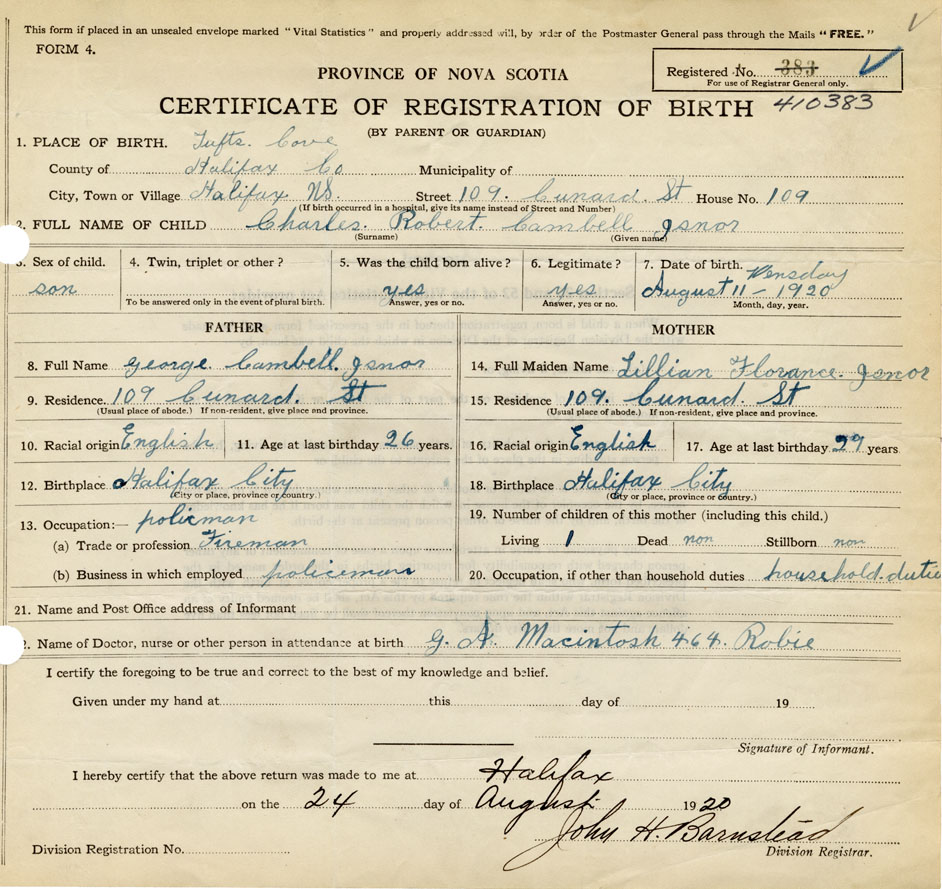 This form if placed in an unsealed envelope marked "Vital Statistics" and properly addressed will, by order of the Postmaster General pass through the Mails "FREE."
FORM 4.
PROVINCE OF NOVA SCOTIA
Registered No. 383
For use of Registrar General only.
CERTIFICATE OF REGISTRATION OF BIRTH 410383
(BY PARENT OR GUARDIAN)
1. PLACE OF BIRTH. Tufts. Cove
County of Halifax Co Municipality of
City, Town or Village Halifax NS. Street 109. Cunard. St House No. 109
(If birth occurred in a hospital, give its name instead of Street and Number)
2. FULL NAME OF CHILD Charles. Robert. Cambell Isnor
(Surname) (Given name)
3. Sex of child. 4. Twin, triplet or other ? 5. Was the child born alive ? 6. Legitimate ? 7. Date of birth. Wensday
son yes yes August 11 - 1920
To be answered only in the event of plural birth. Answer, yes or no. Answer, yes or no. Month, day, year.
FATHER MOTHER
8. Full Name George. Cambell. Isnor 14. Full Maiden Name Lillian Florance. Isnor
9. Residence. 109 Cunard. St 15. Residence 109. Cunard. St
(Usual place of abode.) If non-resident, give place and province. (Usual place of abode.) If non-resident, give place and province.
10. Racial origin English 11. Age at last birthday 26 years. 16. Racial origin English 17. Age at last birthday 27 years
12. Birthplace Halifax City 18. Birthplace Halifax City
(City or place, province or country.) (City or place, province or country.)
13. Occupation:— policman 19. Number of children of this mother (including this child.)
(a) Trade or profession Fireman Living 1 Dead non Stillborn non
(b) Business in which employed policeman 20. Occupation, if other than household duties household. dutie
21. Name and Post Office address of Informant
2. Name of Doctor, nurse or other person in attendance at birth G. A. Macintosh 464. Robie
I certify the foregoing to be true and correct to the best of my knowledge and belief.
Given under my hand at this day of 19
Signature of Informant.
I hereby certify that the above return was made to me at Halifax
on the 24 day of August 1920
John H. Barnstead
Division Registration No. Division Registrar.